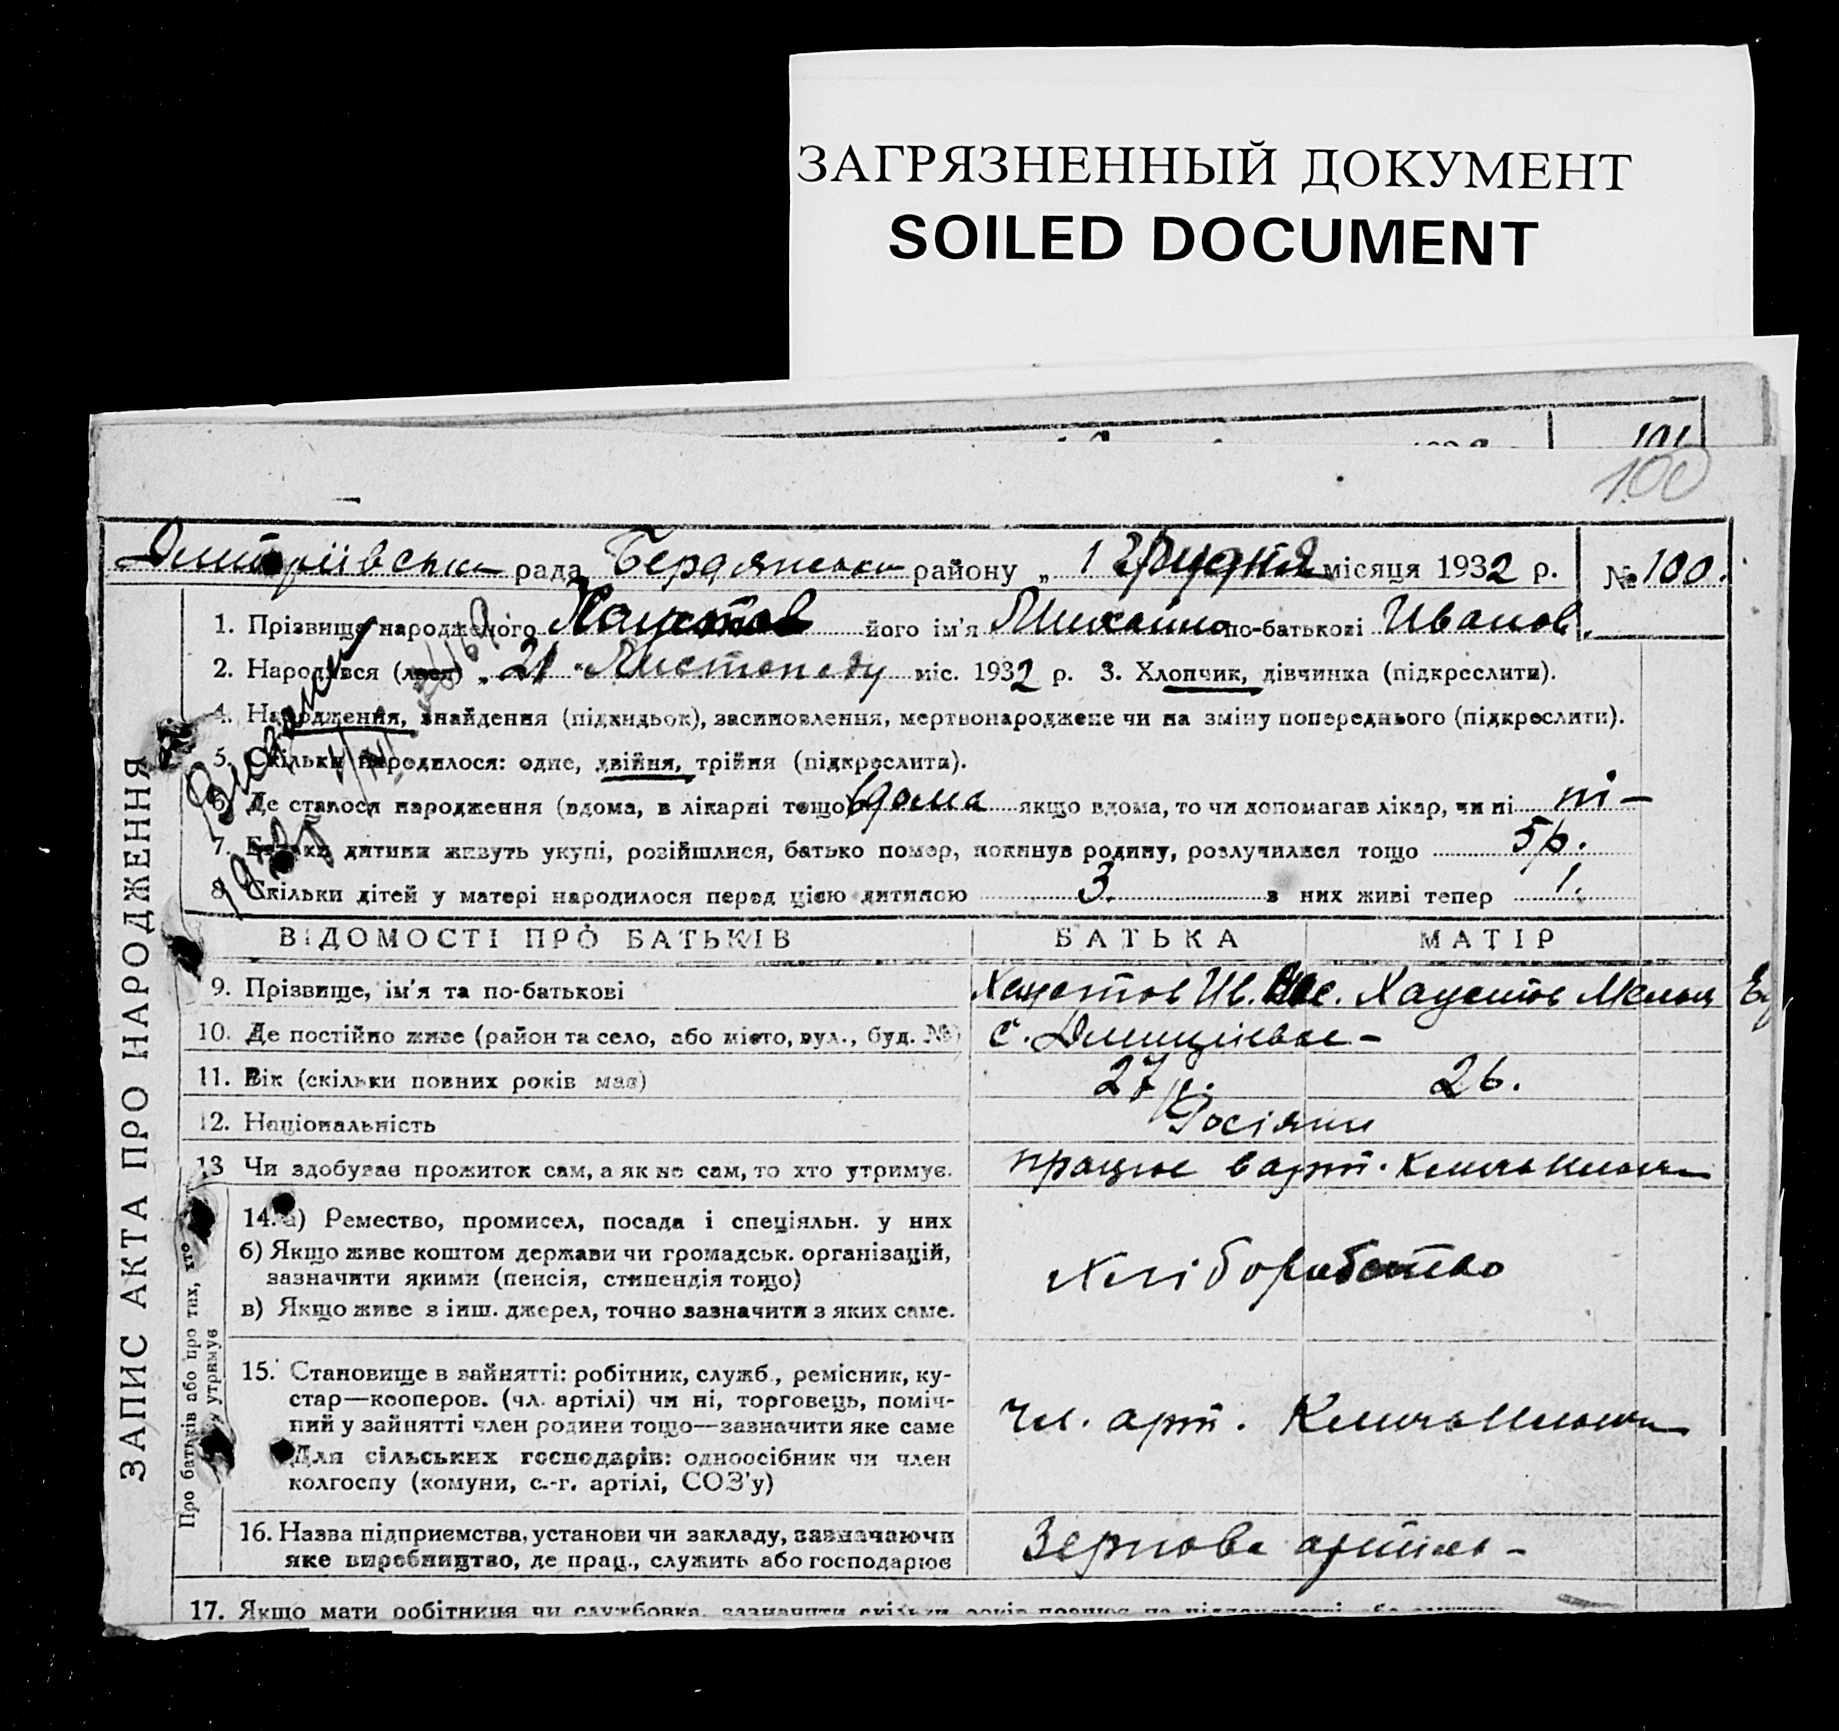 ЗАГРЯЗНЕННЫЙ ДОКУМЕНТ
SOILED DOCUMENT
101
100
Дмитріївська рада Бердянська району „ 1 Грудня місяця 1932 р. № 100.
1. Прізвище народженого Хаустов його ім'я Михайло по-батькові Иванов.
2. Народився (лася) „ 21 “ Листопаду міс. 1932 р. 3. Хлопчик, дівчинка (підкреслити).
4. Народження, знайдення (підкидьок), засиновлення, мертвонароджене чи на зміну попереднього (підкреслити).
5. Скільки народилося: одне, двійня, трійня (підкреслити).
6. Де сталося народження (вдома, в лікарні тощо) вдома якщо вдома, то чи допомагав лікар, чи ні ні –
7. Батьки дитини живуть укупі, розійшлися, батько помер, покинув родину, розлучилися тощо 5 р.
8. Скільки дітей у матері народилося перед цією дитиною 3 з них живі тепер 1.
ВІДОМОСТІ ПРО БАТЬКІВ БАТЬКА МАТІР
9. Прізвище, ім'я та по-батькові Хаустов Ив. Хаустов
10. Де постійно живе (район та село, або місто, вул., буд. №) с.
11. Вік (скільки повних років має) 27 26.
12. Національність Росіяни
13 Чи здобуває прожиток сам, а як не сам, то хто утримує. працює в арт.
14. а) Ремество, промисел, посада і спеціяльн. у них
б) Якщо живе коштом держави чи громадськ. організацій,
зазначити якими (пенсія, стипендія тощо)
в) Якщо живе з інш. джерел, точно зазначити з яких саме.
Хліборобство
15. Становище в зайнятті: робітник, служб., ремісник, ку-
стар—кооперов. (чл. артілі) чи ні, торговець, поміч-
ний у зайнятті член родини тощо—зазначити яке саме
Для сільських господарів: одноосібник чи член
колгоспу (комуни, с.-г. артілі, СОЗ'у)
Чл. арт.
16. Назва підприємства, установи чи закладу, зазначаючи
яке виробництво, де прац., служить або господарює
Зернова артіль –
17. Якщо мати робітниця чи службовка, зазначити скільки років працює на
ЗАПИС АКТА ПРО НАРОДЖЕННЯ
Про батьків або про тих, хто
утримує